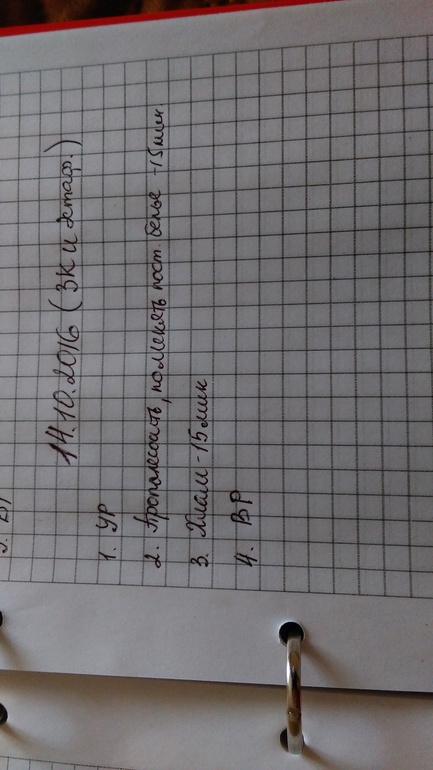 14.10.2016 (3К и детаф.)
1. УР
2. Пропылесосить, поменять пост. белье - 15 мин
3. Хлам - 15 мин
4. ВР